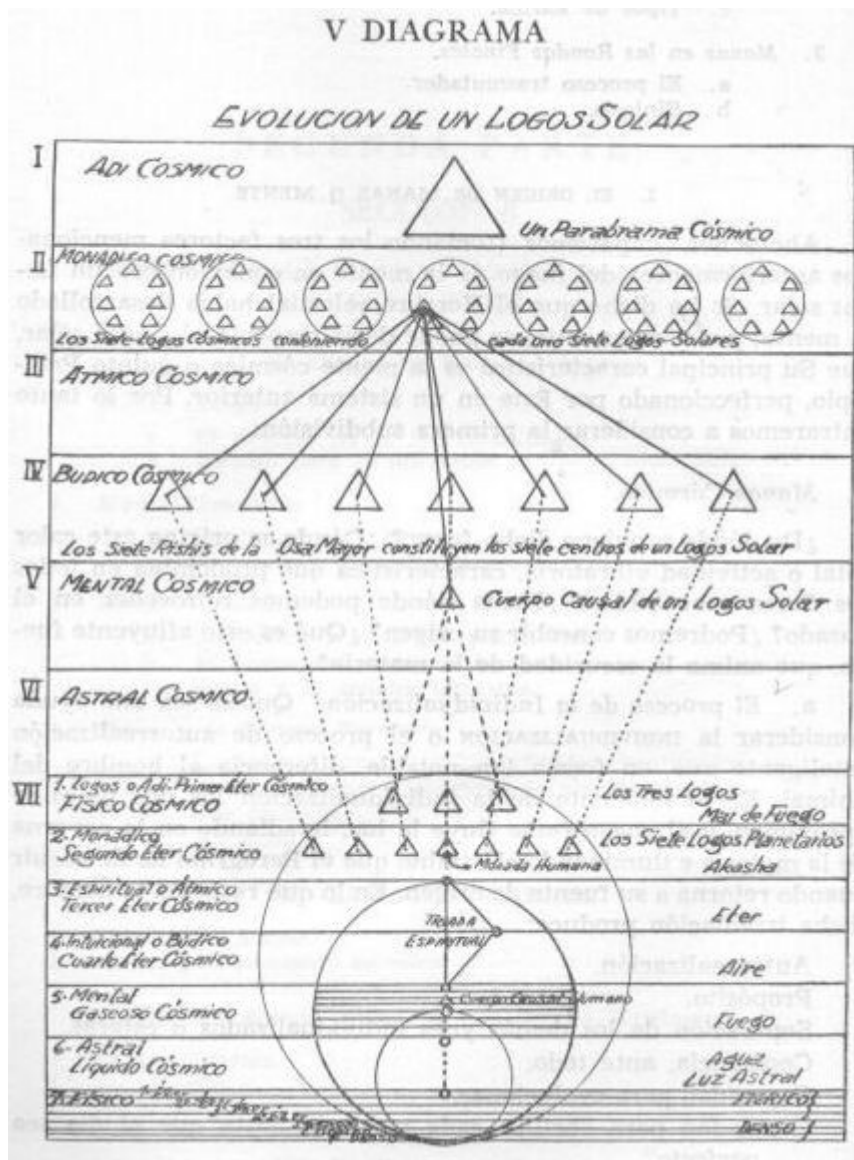 V DIAGRAMA
EVOLUCION DE UN LOGOS SOLAR
I
ADI COSMICO
Un Parabrama Cósmico
II
MONADICO COSMICO
Los Siete Logos Cósmicos conteniendo cada uno Siete Logos Solares
III
ATMICO COSMICO
IV
BUDICO COSMICO
Los Siete Rishis de la Osa Mayor constituyen los siete centros de un Logos Solar
V
MENTAL COSMICO
Cuerpo Causal de un Logos Solar
VI
ASTRAL COSMICO
VII
1. Logos o Adi. Primer Eter Cósmico
FISICO COSMICO
Los Tres Logos
Mar de Fuego
2. Monádico
Segundo Eter Cósmico
Los Siete Logos Planetarios
Akasha
Humana
3. Espiritual o Atmico
Tercer Eter Cósmico
Eter
TRIADA
ESPIRITUAL
4. Intuicional o Búdico
Cuarto Eter Cósmico
Aire
5. Mental
Gaseoso Cósmico
Cuerpo Causal Humano
Fuego
6. Astral
Líquido Cósmico
Agua
Luz Astral
7. Físico
ETERICO
DENSO